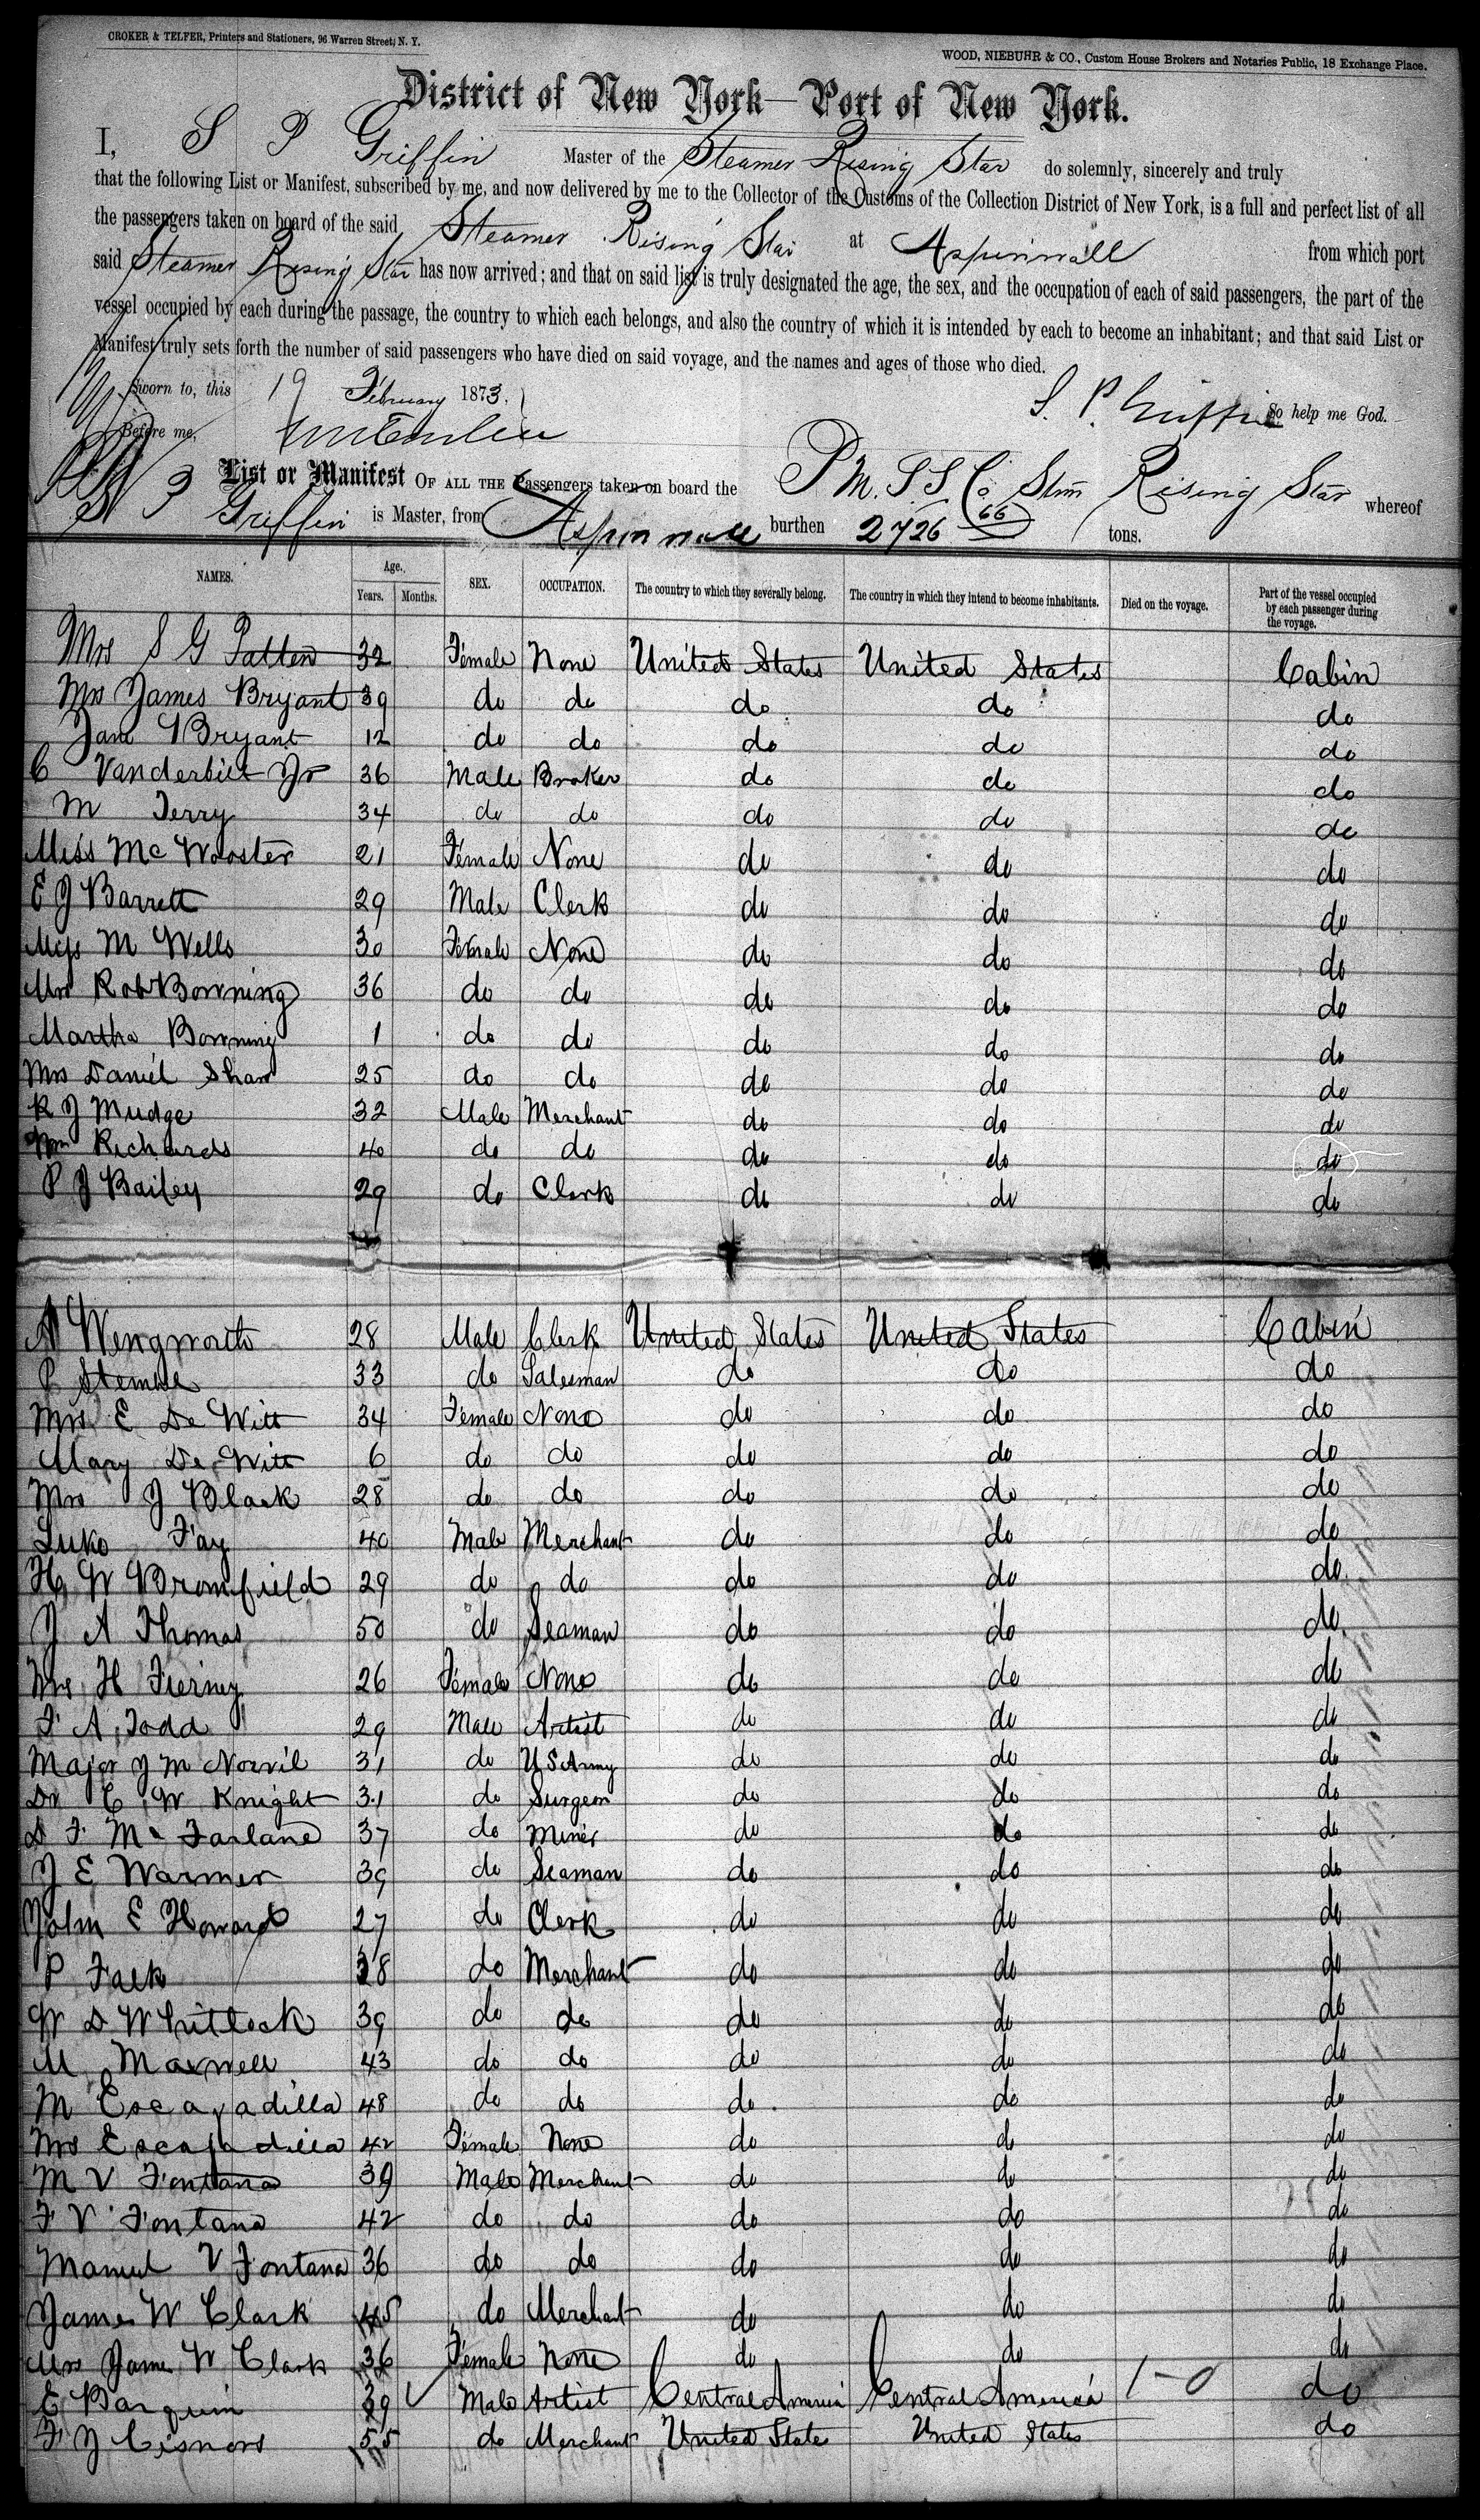 CROKER & TELFER, Printers and Stationers, 96 Warren Street, N. Y.
WOOD, NIEBUHR & CO., Custom House Brokers and Notaries Public, 18 Exchange Place.
District of New York—Port of New York.
I, S P Griffin Master of the Steamer Rising Star do solemnly, sincerely and truly
that the following List or Manifest, subscribed by me, and now delivered by me to the Collector of the Customs of the Collection District of New York, is a full and perfect list of all
the passengers taken on board of the said Steamer Rising Star at Aspinwall from which port
said Steamer Rising Star has now arrived; and that on said list is truly designated the age, the sex, and the occupation of each of said passengers, the part of the
vessel occupied by each during the passage, the country to which each belongs, and also the country of which it is intended by each to become an inhabitant; and that said List or
Manifest truly sets forth the number of said passengers who have died on said voyage, and the names and ages of those who died.
Sworn to, this 19 February 1873. S. P. Griffin So help me God.
Before me,
List or Manifest OF ALL THE Passengers taken on board the P M. S S Co. Stm Rising Star whereof
Griffin is Master, from Aspinwall burthen 2726 66 tons.
NAMES. Age. Years. Months. SEX. OCCUPATION. The country to which they severally belong. The country in which they intend to become inhabitants. Died on the voyage. Part of the vessel occupied by each passenger during the voyage.
Mrs S G Patten 32 Female None United States United States Cabin
Mrs James Bryant 39 do do do do do
Jane Bryant 12 do do do do do
C Vanderbilt Jr 36 Male Broker do do do
M Terry 34 do do do do do
Miss Mc Wooster 21 Female None do do do
E J Barrett 29 Male Clerk do do do
Miss M Wells 30 Female None do do do
Mrs Robt Bowning 36 do do do do do
Martha Bowning 1 do do do do do
Mrs Daniel Shaw 25 do do do do do
R J Mudge 32 Male Merchant do do do
Wm Richards 40 do do do do do
P J Bailey 29 do Clerk do do do
A Wengworth 28 Male Clerk United States United States Cabin
P Stemble 33 do Salesman do do do
Mrs E De Witt 34 Female None do do do
Mary De Witt 6 do do do do do
Mrs J Black 28 do do do do do
Luke Fay 40 Male Merchant do do do
H W Bromfield 29 do do do do do
J A Thomas 50 do Seaman do do do
Mrs H Tierney 26 Female None do do do
F A Todd 29 Male Artist do do do
Major J M Norvil 31 do US Army do do do
Dr C W Knight 31 do Surgeon do do do
D F Mc Farlane 37 do Miner do do do
J E Warner 39 do Seaman do do do
John E Howard 27 do Clerk do do do
P Falk 38 do Merchant do do do
W D Whitlock 39 do do do do do
M Maxwell 43 do do do do do
M Escapadilla 48 do do do do do
Mrs Escapadilla 42 Female None do do do
M V Fontana 39 Male Merchant do do do
F V Fontana 42 do do do do do
Manuel V Fontana 36 do do do do do
James W Clark 45 do Merchant do do do
Mrs James W Clark 36 Female None do do do
E Barquin 39 Male Artist Central America Central America 1-0 do
F J Cisneros 55 do Merchant United States United States do